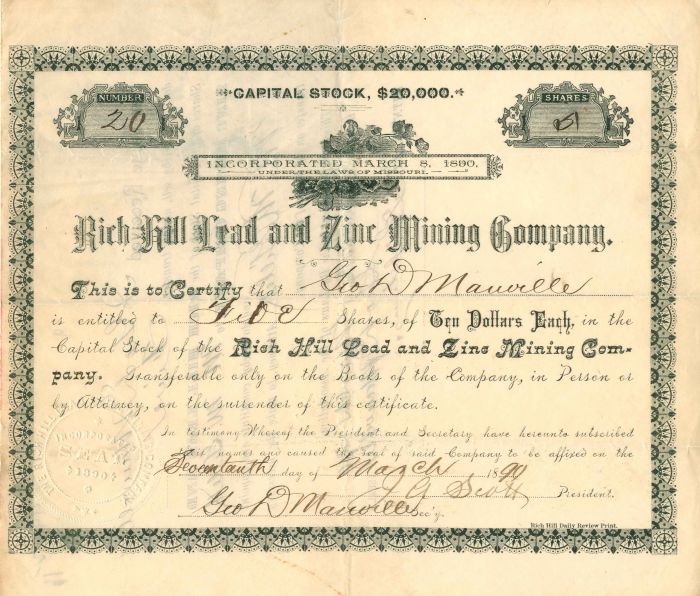 NUMBER
20
CAPITAL STOCK, $20,000.
SHARES
5
INCORPORATED MARCH 8, 1890.
UNDER THE LAWS OF MISSOURI.
Rich Hill Lead and Zinc Mining Company.
This is to Certify that Geo D Manville
is entitled to Five Shares, of Ten Dollars Each, in the
Capital Stock of the Rich Hill Lead and Zinc Mining Com-
pany. Transferable only on the Books of the Company, in Person or
by Attorney, on the surrender of this certificate.
In testimony Whereof the President and Secretary have hereunto subscribed
their names and caused the seal of said Company to be affixed on the
Seventeenth day of March 1890
J. G. Scott President.
Geo D Manville Sec'y.
INCORPORATED
SEAL
1890
Rich Hill Daily Review Print.